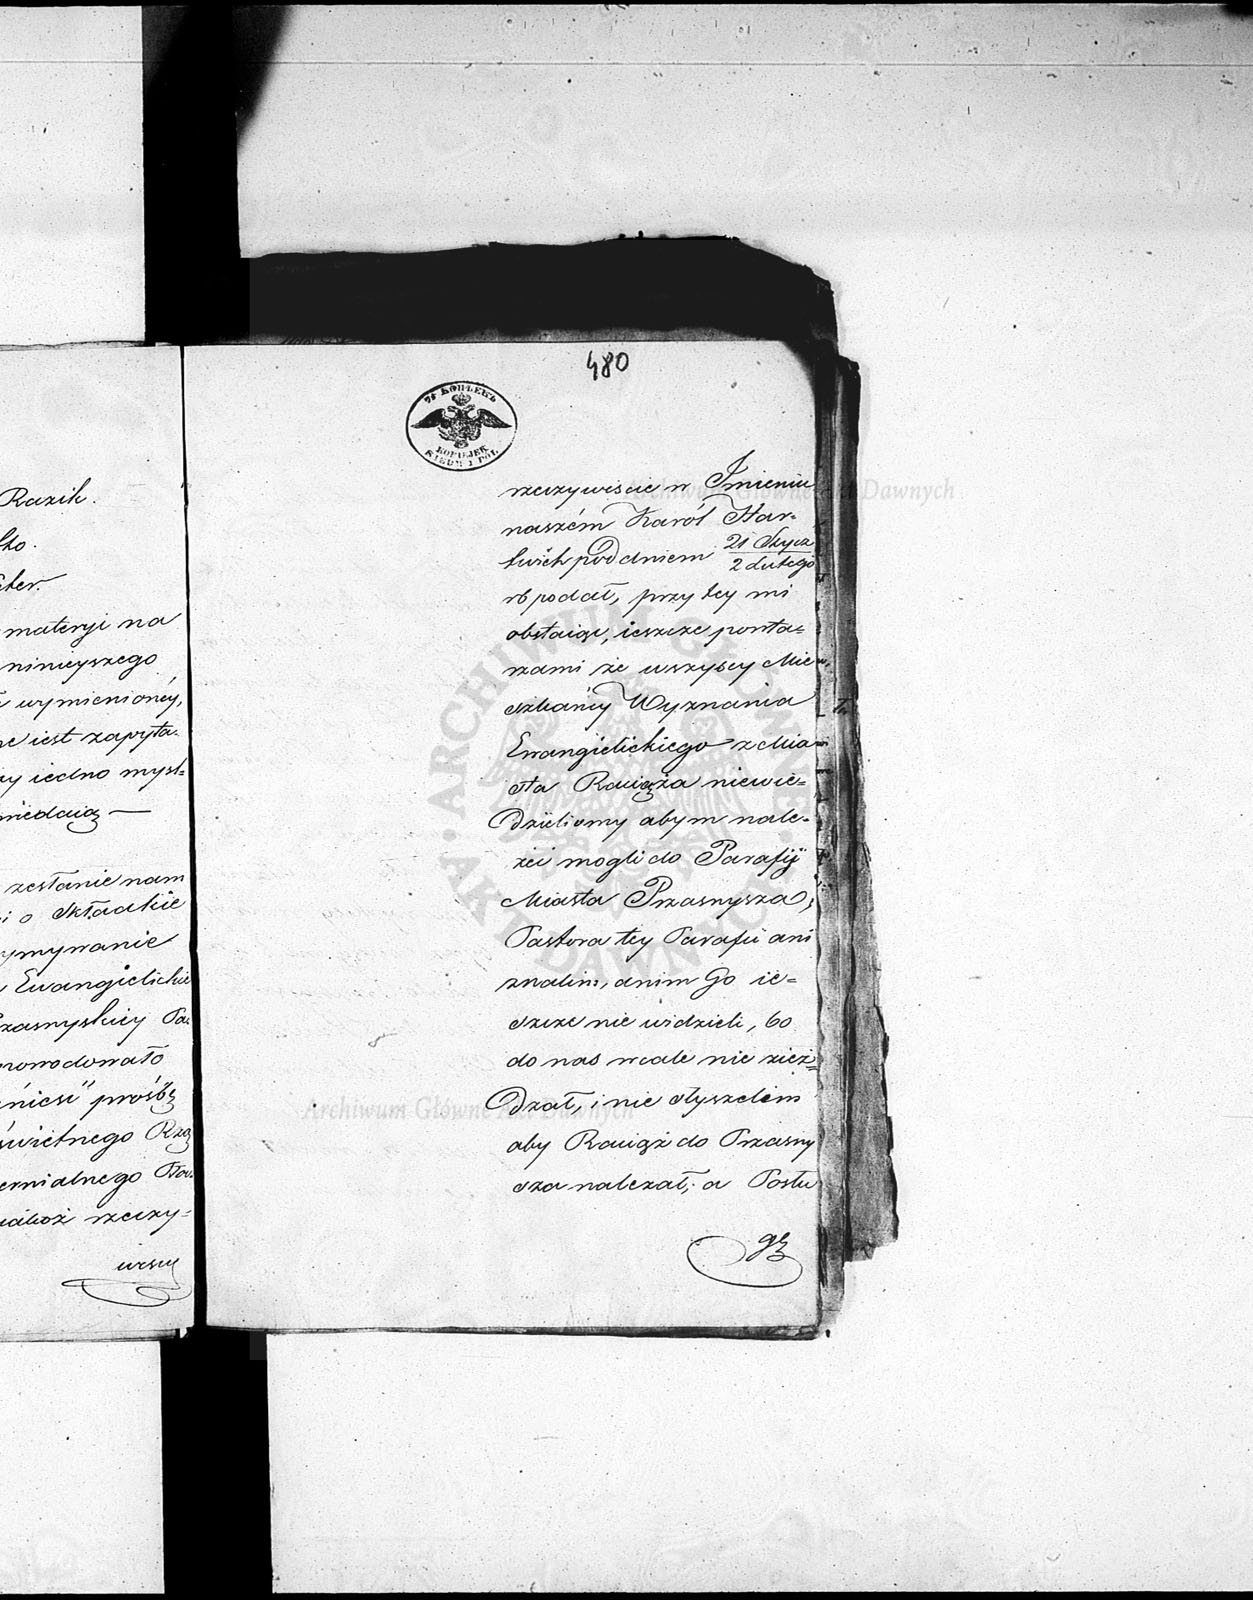 Razik.
materyi na
niniejszego
wymienioney,
iest zapyta-
iedno mysl=
zestanie nam
i o składkie
Ewangielickie
prośbę
rzeczy=
480
75 КОПѢЕКЪ
KOPIEJEK
rzeczywiscie w Imieniu
naszém Karól Har-
twich pod dniem 21 Stycz / 2 Lutego
rb podał, przy tey mi
obstaiąc, ieszcze powta=
rzami że wszyscy Mie
szkańcy Wyznania
Ewangielickiego z Mia=
sta Raciąża niewie=
dzieliemy abym nale=
żéć mogli do Parafij
Miasta Przasnysza,
Pastora tey Parafii ani
znalim, anim Go ie=
szcze nie widzieli, bo
do nas wcale nie zież=
dzał, i nie słyszelim
aby Raciąż do Przasny
sza należał, a Posłu
gę
Archiwum Główne Akt Dawnych
Archiwum Główne Akt Dawnych
ARCHIWUM GŁÓWNE AKT DAWNYCH